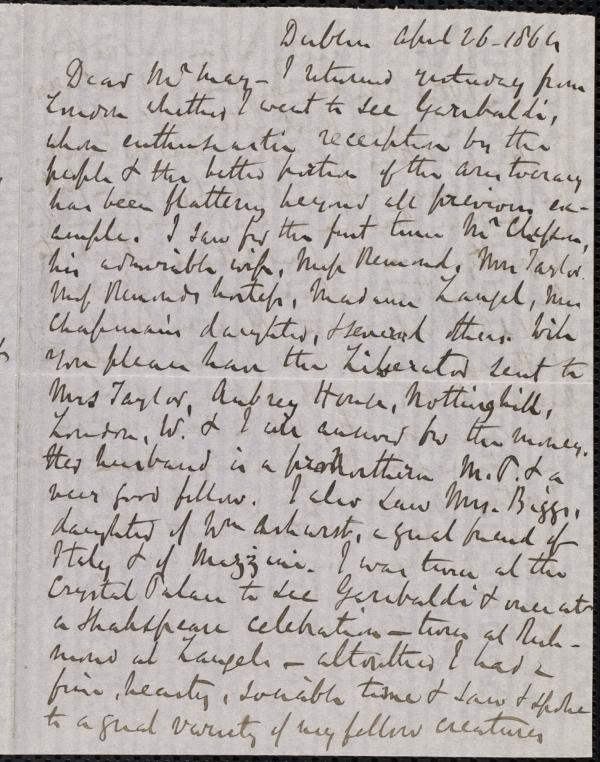 Dublin April 26-1864
Dear Mr May - I returned yesterday from
London whither I went to see Garibaldi,
whose enthusiastic reception by the
people & the better portion of the aristocracy
has been flattering beyond all previous ex-
ample. I saw for the first time Mr
his admirable wife, Miss Remond, Mrs Taylor,
Miss Remond's hostess, Madame Laugel, Mrs
Chapman's daughter, & several others. Will
you please have the Liberator sent to
Mrs Taylor, Aubrey House, Nottinghill,
London, W. & I will answer for the money.
Her husband is a pro Northern M.P. & a
very good fellow. I also saw Mrs. Biggs,
daughter of Wm Ashurst, a great friend of
Italy & of Mazzini. I was twice at the
Crystal Palace to see Garibaldi & once at
a Shakspeare celebration - twice at Rich-
mond at Laugels - altogether I had a
fine, hearty, sociable time & saw & spoke
to a great variety of my fellow creatures